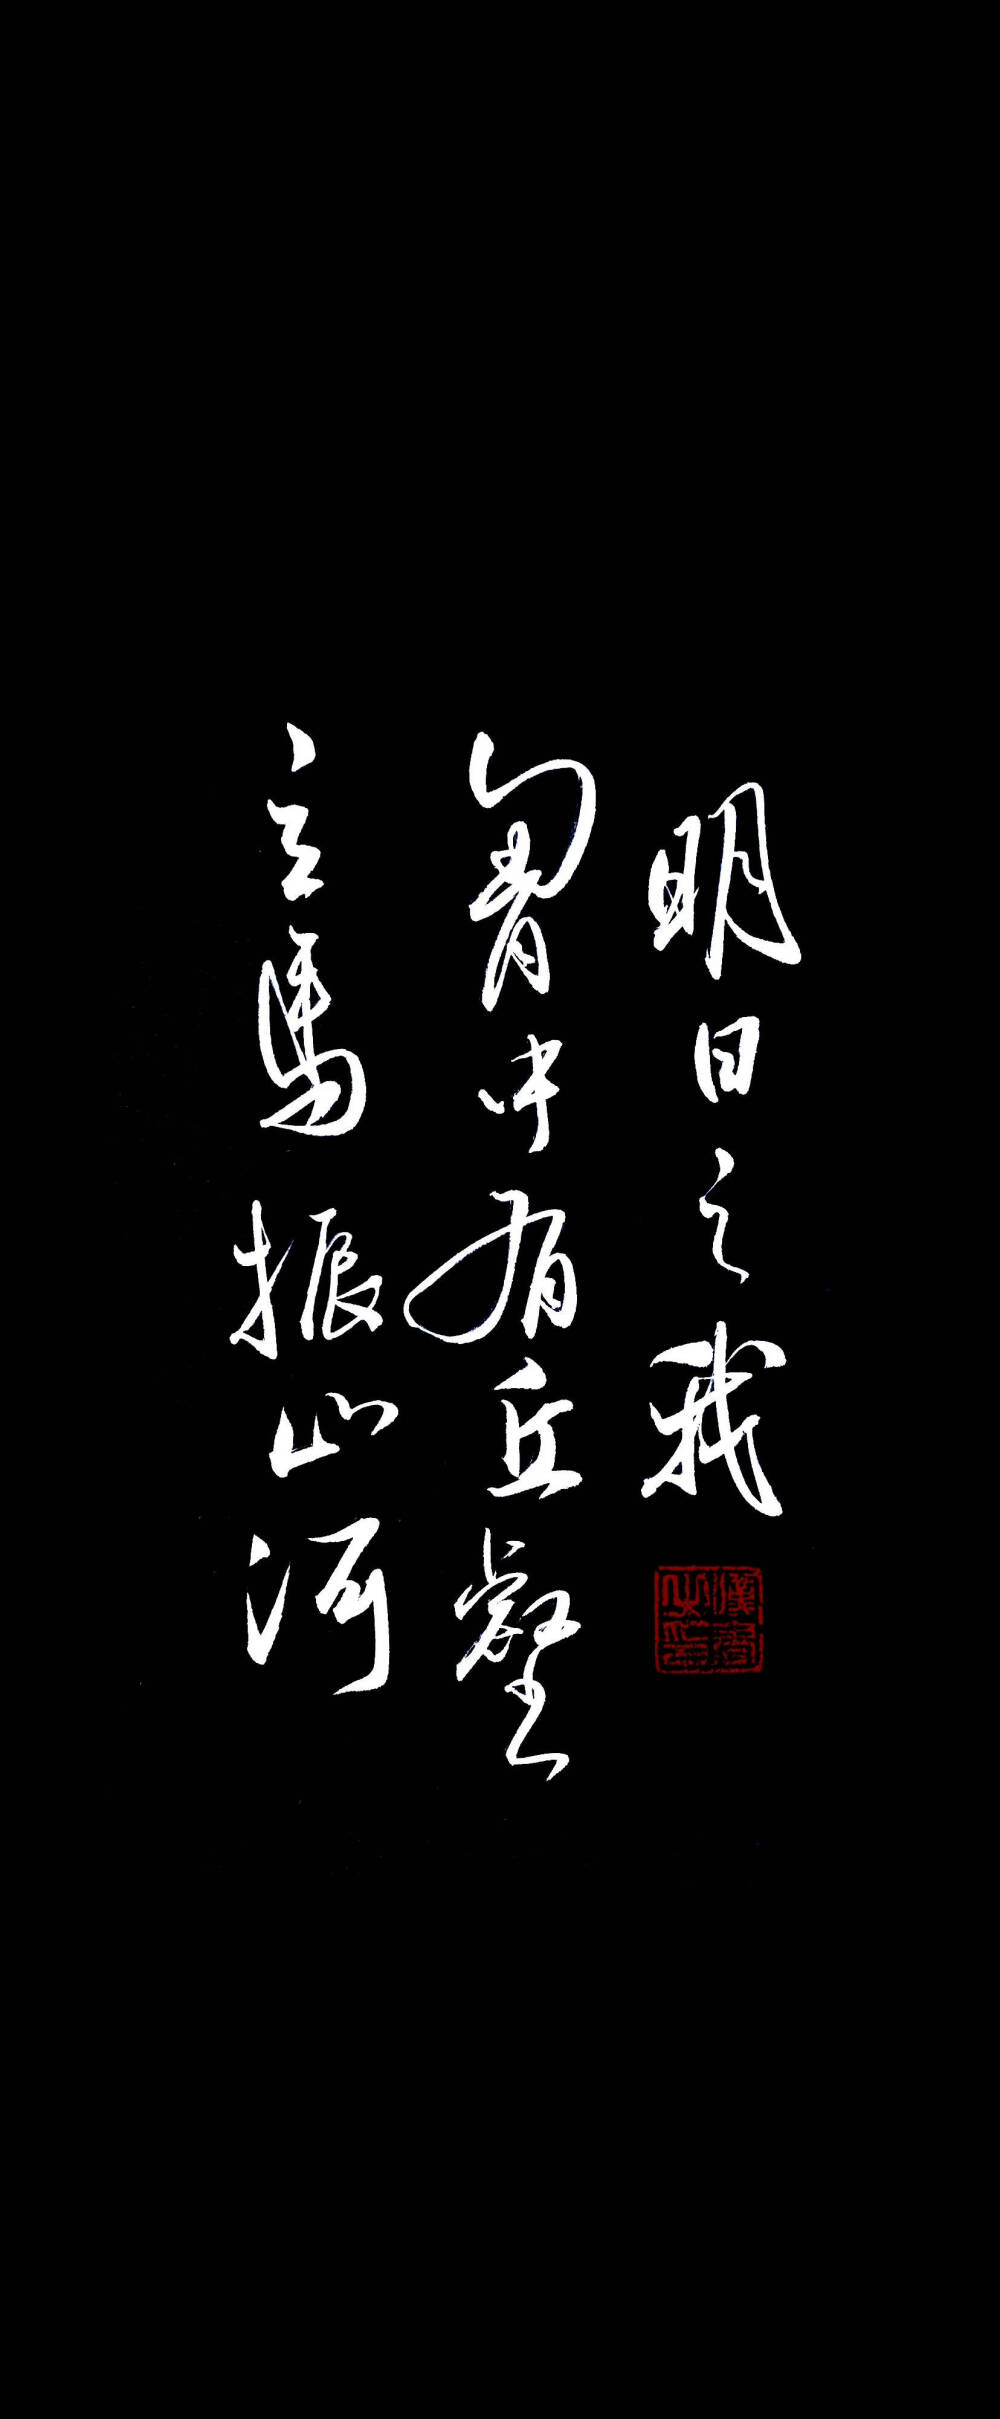 明日之我
胷中有丘壑
立馬振山河